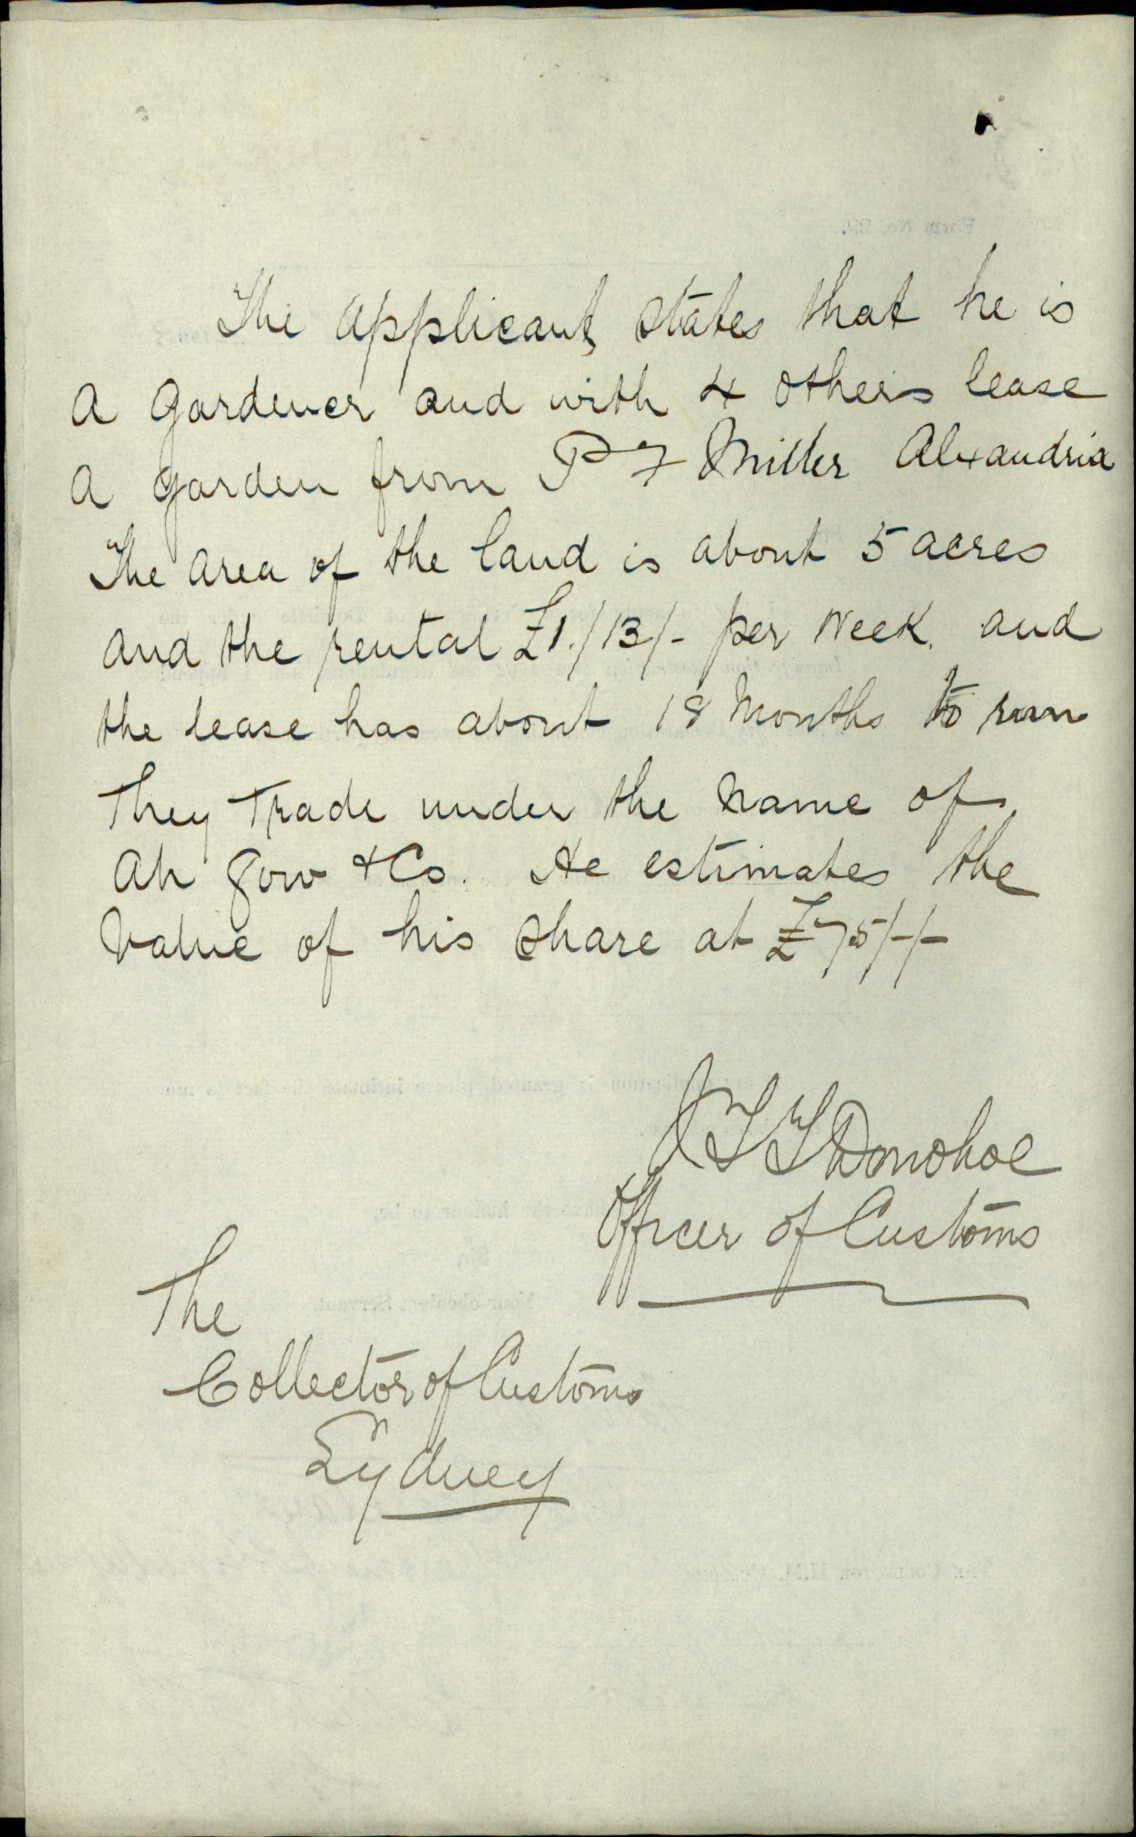 The applicant states that he is
a gardener and with 4 others lease
a garden from P F Miller Alexandria
The area of the land is about 5 acres
and the rental £1./13/- per week. and
the lease has about 18 months to run
They trade under the name of
Ah Gow & Co. He estimates the
value of his share at £75/-/-
J T T Donohoe
Officer of Customs
The
Collector of Customs
Sydney